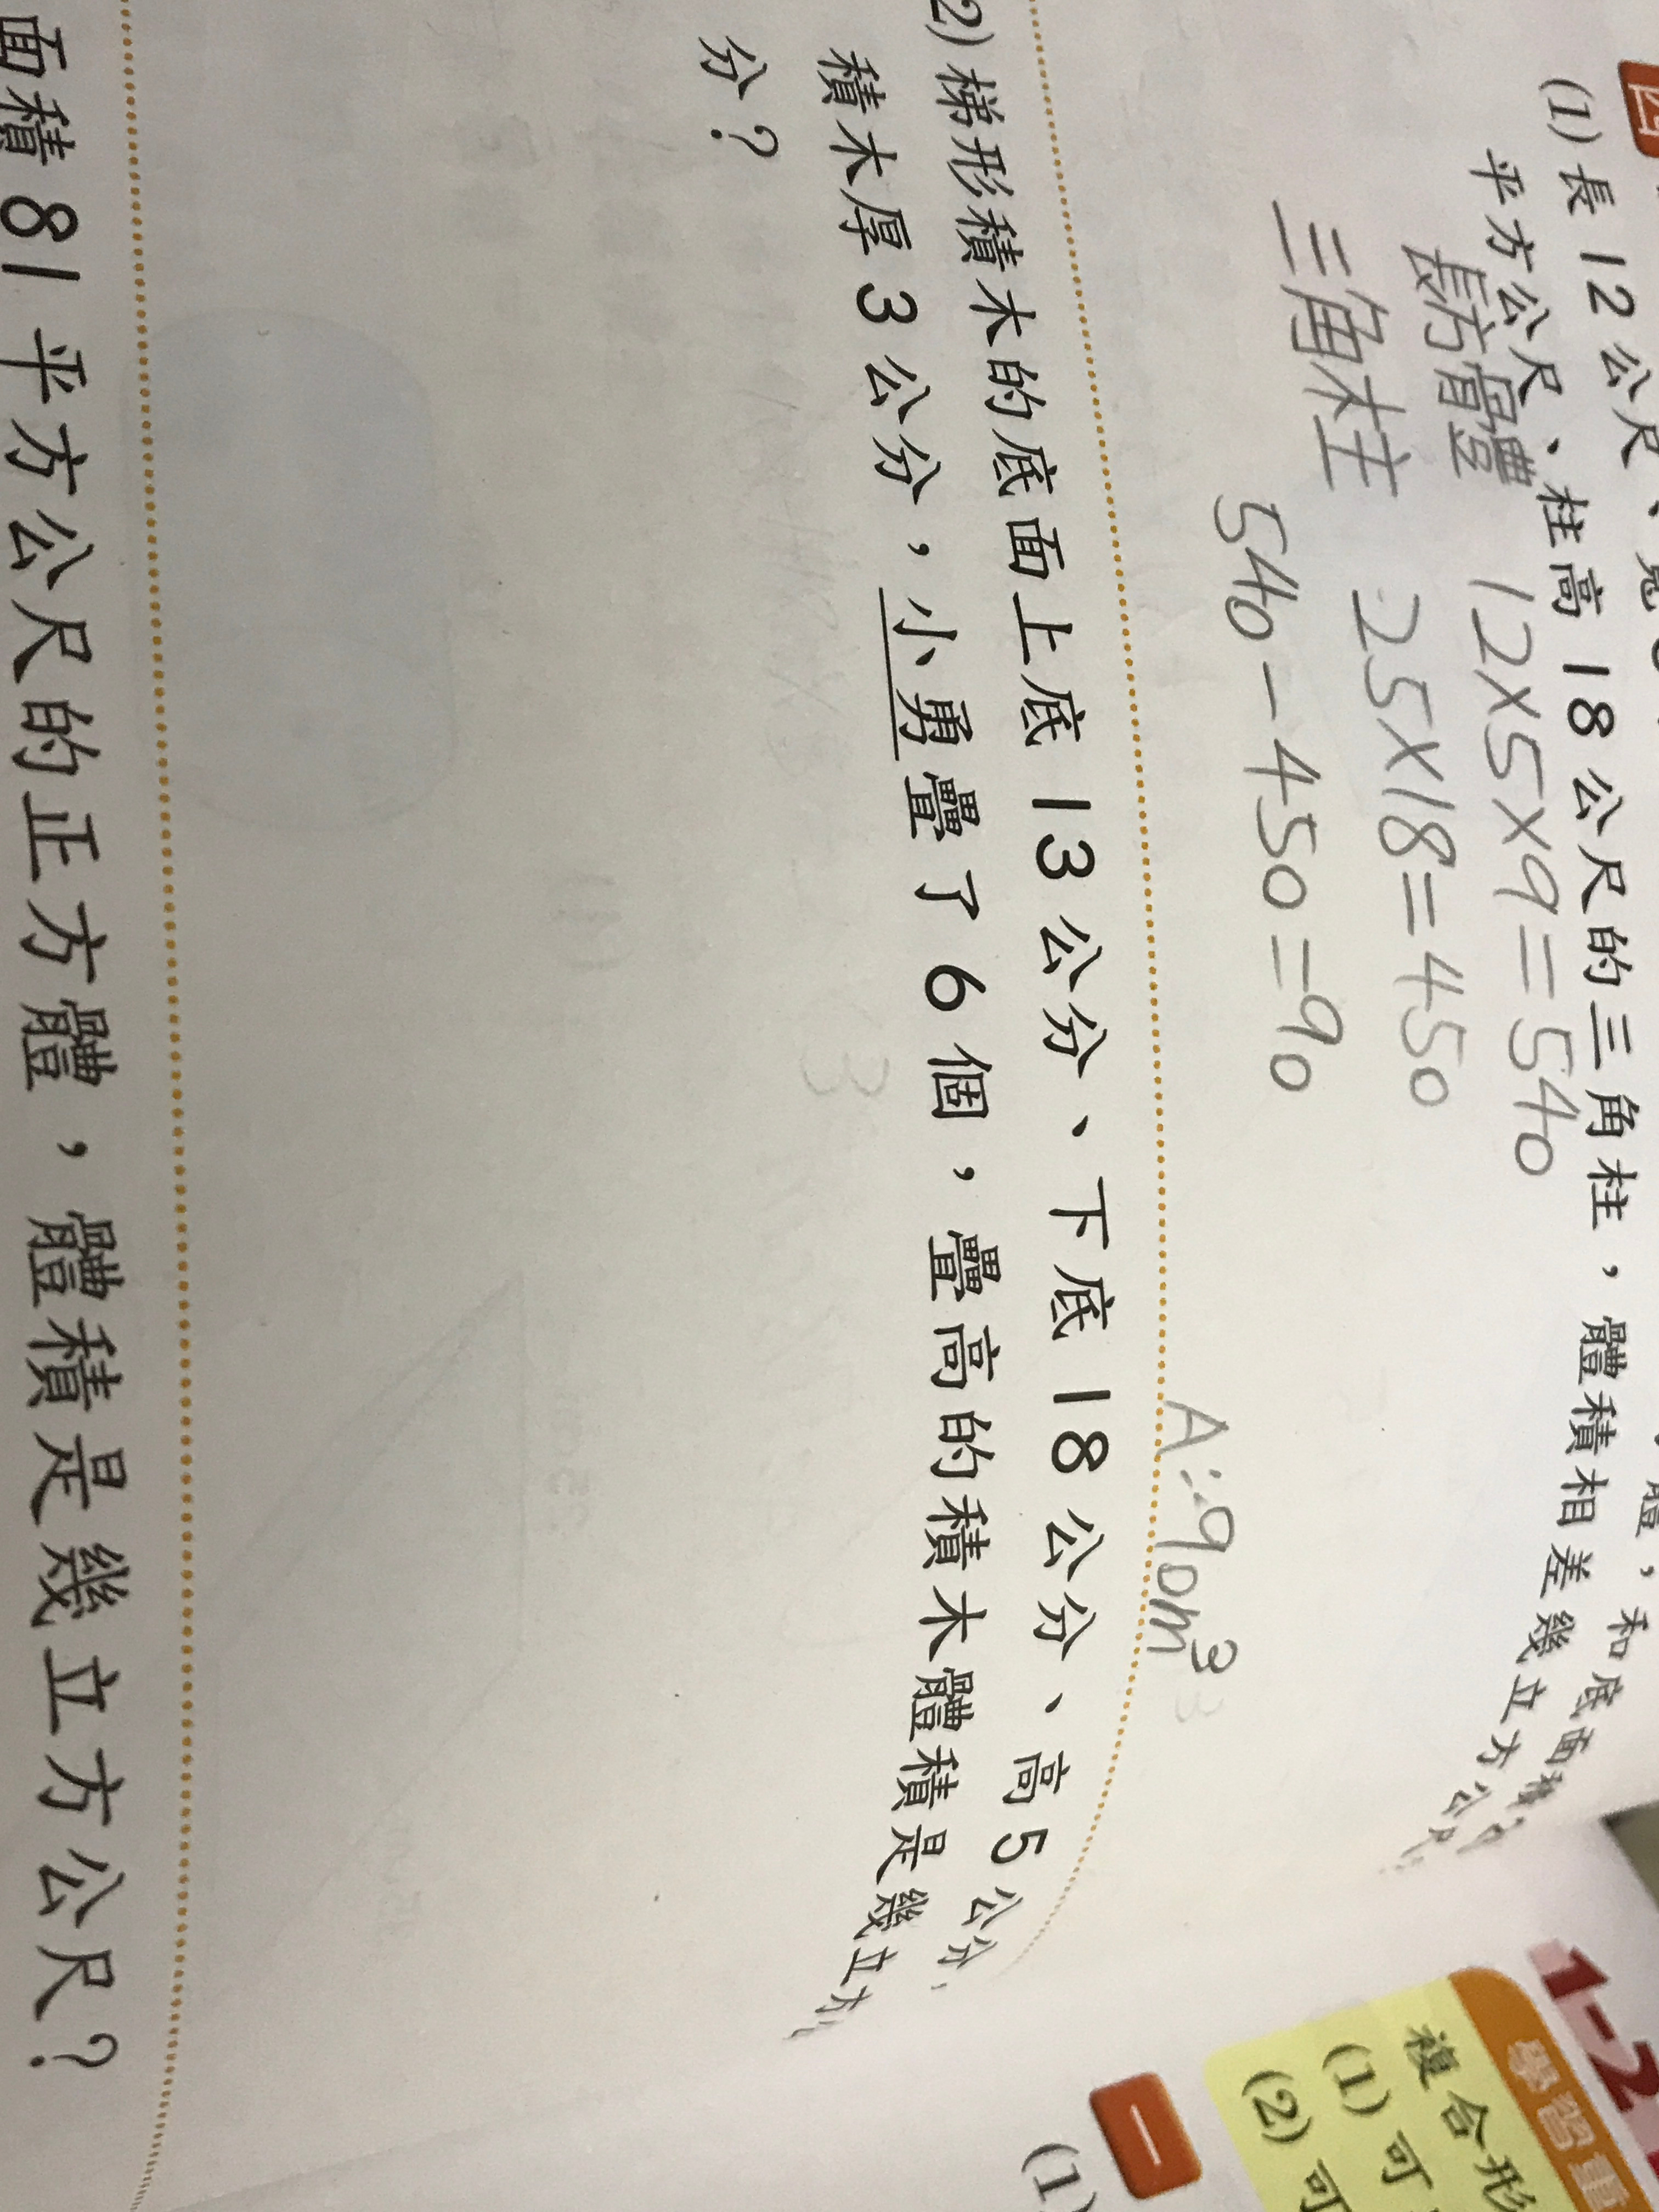 四
(1) 長 12 公尺、寬
體，和底面積
平方公尺、柱高 18 公尺的三角柱，體積相差幾立方公尺
長方體 12×5×9=540
三角柱 25×18=450
540-450=90
A:90m³
2) 梯形積木的底面上底 13 公分、下底 18 公分、高 5 公分，
積木厚 3 公分，小勇疊了 6 個，疊高的積木體積是幾立方
分？
面積 81 平方公尺的正方體，體積是幾立方公尺？
1-2
學習重
複合形
(1) 可
(2) 可
一
(1)